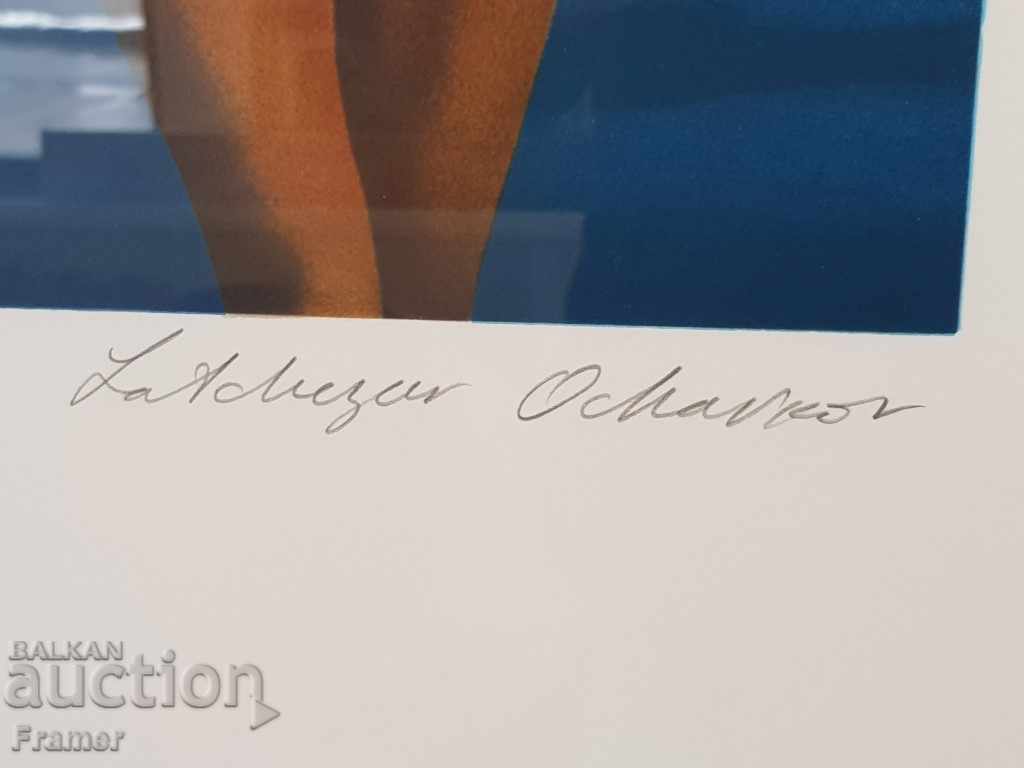 Latchezar Ochavkov
BALKAN
auction
Framer